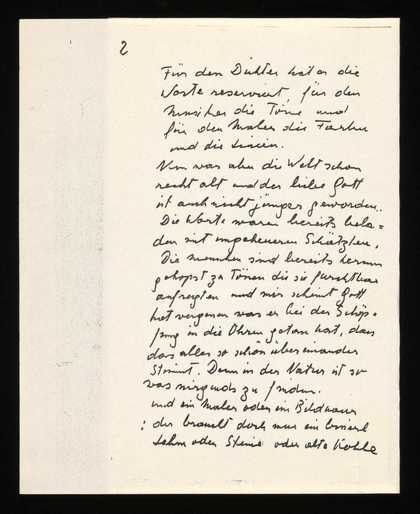 2
Für den Dichter hat er die
Worte reserviert, für den
Musiker die Töne und
für den Maler die Farben
und die Linien.
Nun war aber die Welt schon
recht alt und der liebe Gott
ist auch nicht jünger geworden.
Die Worte waren bereits bela=
den mit ungeheueren Schätzen,
Die Menschen sind bereits herum
gehopst zu Tönen die sie furchtbar
aufregten und mir scheint Gott
hat vergessen was er bei der Schöp=
fung in die Ohren getan hat, dass
das alles so schön übereinander
stimmt. Denn in der Natur ist so
was nirgends zu finden.
und ein Maler oder ein Bildhauer
: der braucht doch nur ein
Lehm oder Steine oder alte Kohle